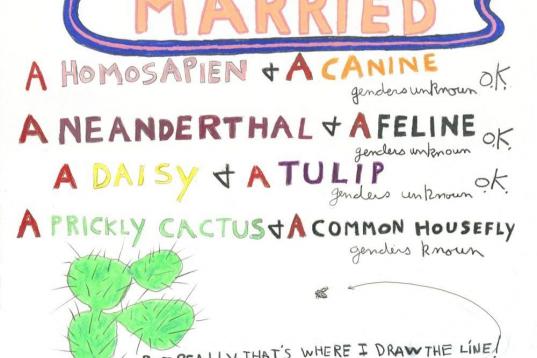 MARRIED
A HOMOSAPIEN & A CANINE
genders unknown O.K.
A NEANDERTHAL & A FELINE
genders unknown O.K.
A DAISY & A TULIP
genders unknown O.K.
A PRICKLY CACTUS & A COMMON HOUSEFLY
genders known
REALLY THAT'S WHERE I DRAW THE LINE!